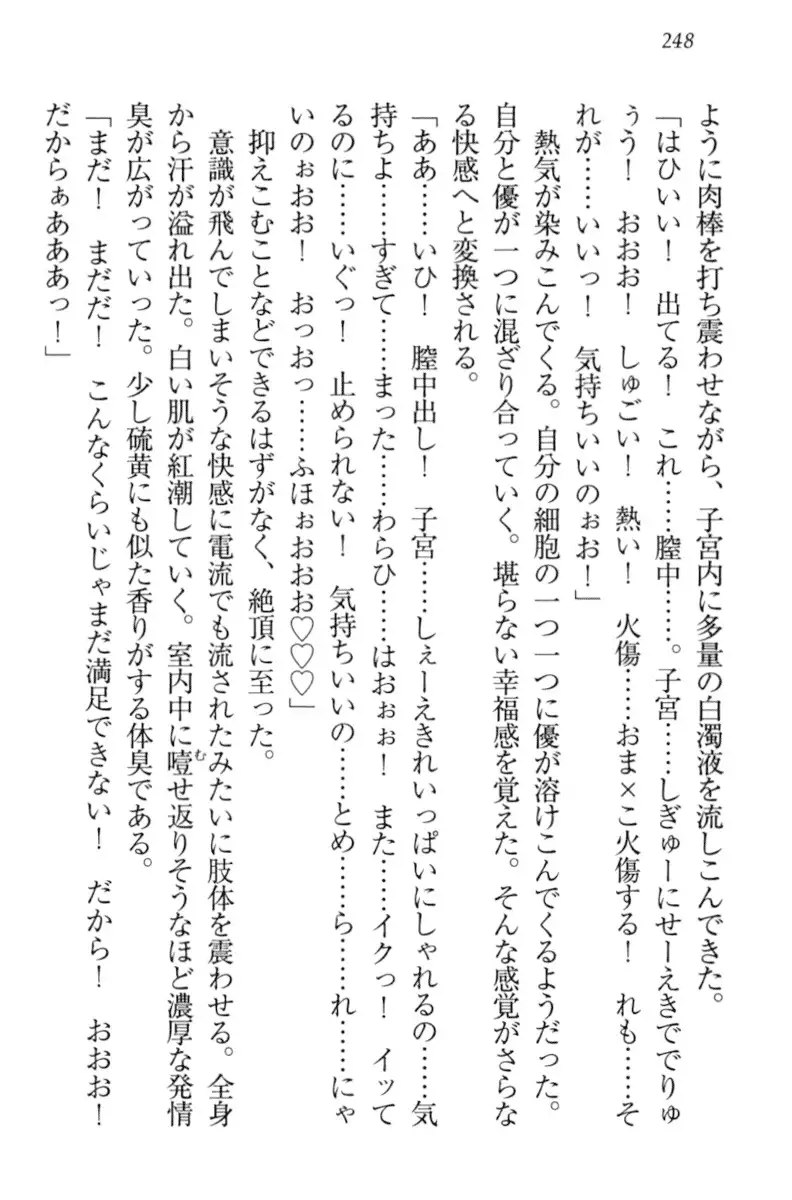 248
ように肉棒を打ち震わせながら、子宮内に多量の白濁液を流しこんできた。
「はひいい！　出てる！　これ……膣中……。子宮……しぎゅーにせーえきででりゅ
ぅう！　おおお！　しゅごい！　熱い！　火傷……おま×こ火傷する！　れも……そ
れが……いいっ！　気持ちいいのぉお！」
　熱気が染みこんでくる。自分の細胞の一つ一つに優が溶けこんでくるようだった。
自分と優が一つに混ざり合っていく。堪らない幸福感を覚えた。そんな感覚がさらな
る快感へと変換される。
「ああ……いひ！　膣中出し！　子宮……しぇーえきれいっぱいにしゃれるの……気
持ちよ……すぎて……まった……わらひ……はおぉぉ！　また……イクっ！　イッて
るのに……いぐっ！　止められない！　気持ちいいの……とめ……ら……れ……にゃ
いのぉおお！　おっおっ……ふほぉおおお♡♡♡」
　抑えこむことなどできるはずがなく、絶頂に至った。
　意識が飛んでしまいそうな快感に電流でも流されたみたいに肢体を震わせる。全身
から汗が溢れ出た。白い肌が紅潮していく。室内中に噎せ返りそうなほど濃厚な発情
臭が広がっていった。少し硫黄にも似た香りがする体臭である。
「まだ！　まだだ！　こんなくらいじゃまだ満足できない！　だから！　おおお！
だからぁあああっ！」